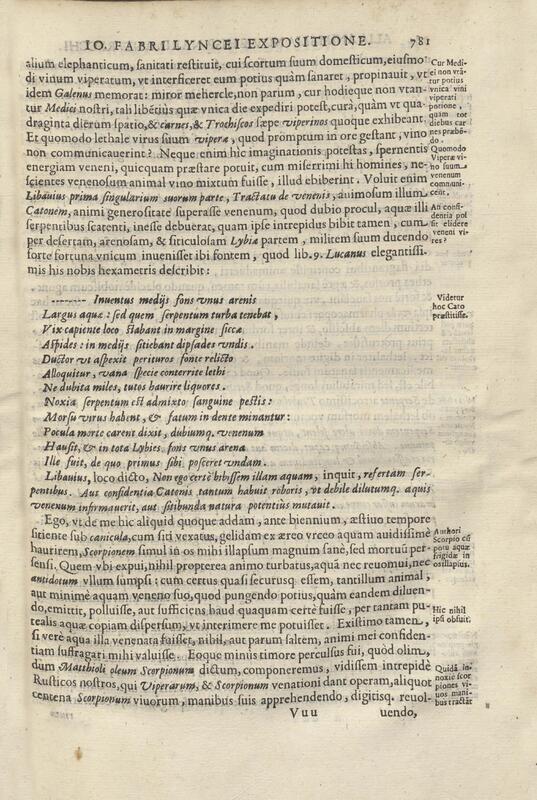 IO. FABRI LYNCEI EXPOSITIONE. 781
alium elephanticum, sanitati restituit, cui scortum suum domesticum, eiusmo-
di vinum viperatum, vt interficeret eum potius quàm sanaret, propinauit, vt
idem Galenus memorat: miror mehercle, non parum, cur hodieque non vtan-
tur Medici nostri, tali libētius quæ vnica die expediri potest, cura, quàm vt qua-
draginta dierum spatio, & carnes, & Trochiscos sæpe viperinos quoque exhibeant.
Et quomodo lethale virus suum viperæ, quod promptum in ore gestant, vino
non communicauerint? Neque enim hic imaginationis potestas, spernentis
energiam veneni, quicquam præstare potuit, cum miserrimi hi homines, ne-
scientes venenosum animal vino mixtum fuisse, illud ebiberint. Voluit enim
Libauius prima singularium suorum parte, Tractatu de venenis, animosum illum
Catonem, animi generositate superasse venenum, quod dubio procul, aquæ illi
serpentibus scatenti, inesse debuerat, quam ipse intrepidus bibit tamen, cum
per desertam, arenosam, & siticulosam Lybiæ partem, militem suum ducendo
forte fortuna vnicum inuenisset ibi fontem, quod lib. 9. Lucanus elegantissi-
mis his nobis hexametris describit:
Cur Medi-
ci non vtā-
tur potius
vnica vini
viperati
potione,
quam tot
diebus car
nes præbē-
do.
Quomodo
Viperæ vi-
no suum
venenum
communi-
cent.
An confi-
dentia pos
sit elidere
veneni vi-
res?
-------- Inuentus medijs fons vnus arenis
Largus aquæ: sed quem serpentum turba tenebat,
Vix capiente loco stabant in margine siccæ
Aspides: in medijs sitiebant dipsades vndis.
Ductor vt aspexit perituros fonte relicto
Alloquitur, vana specie conterrite lethi
Ne dubita miles, tutos haurire liquores.
Noxia serpentum est admixto sanguine pestis:
Morsu virus habent, & fatum in dente minantur:
Pocula morte carent dixit, dubiumq. venenum
Hausit, & in tota Lybies fons vnus arena
Ille fuit, de quo primus sibi posceret vndam.
Videtur
hoc Cato
præstitisse.
Libauius, loco dicto, Non ego certè bibissem illam aquam, inquit, refertam ser-
pentibus. Aut confidentia Catonis tantum habuit roboris, vt debile dilutumq. aquis
venenum infirmauerit, aut sitibunda natura potentius mutauit.
Ego, vt de me hic aliquid quoque addam, ante biennium, æstiuo tempore
sitiente sub canicula, cum siti vexatus, gelidam ex æreo vrceo aquam auidissimè
haurirem, Scorpionem simul in os mihi illapsum magnum sanè, sed mortuū per-
sensi. Quem vbi expui, nihil propterea animo turbatus, aquā nec reuomui, nec
antidotum vllum sumpsi: cum certus quasi securusq. essem, tantillum animal,
aut minimè aquam veneno suo, quod pungendo potius, quàm eandem diluen-
do, emittit, polluisse, aut sufficiens haud quaquam certè fuisse, per tantam pu-
tealis aquæ copiam dispersum, vt interimere me potuisset. Existimo tamen,
si verè aqua illa venenata fuisset, nihil, aut parum saltem, animi mei confiden-
tiam suffragari mihi valuisse. Eoque minùs timore perculsus fui, quòd olim,
dum Matthioli oleum Scorpionum dictum, componeremus, vidissem intrepidè
Rusticos nostros, qui Viperarum, & Scorpionum venationi dant operam, aliquot
centena Scorpionum viuorum, manibus suis apprehendendo, digitisq. reuol-
Authori
Scorpio cū
potu aquæ
frigidæ in
os illapsus.
Hic nihil
ipsi obfuit.
Quidā in-
noxiè scor
piones vi-
uos mani-
bus tractāt
Vuu uendo,